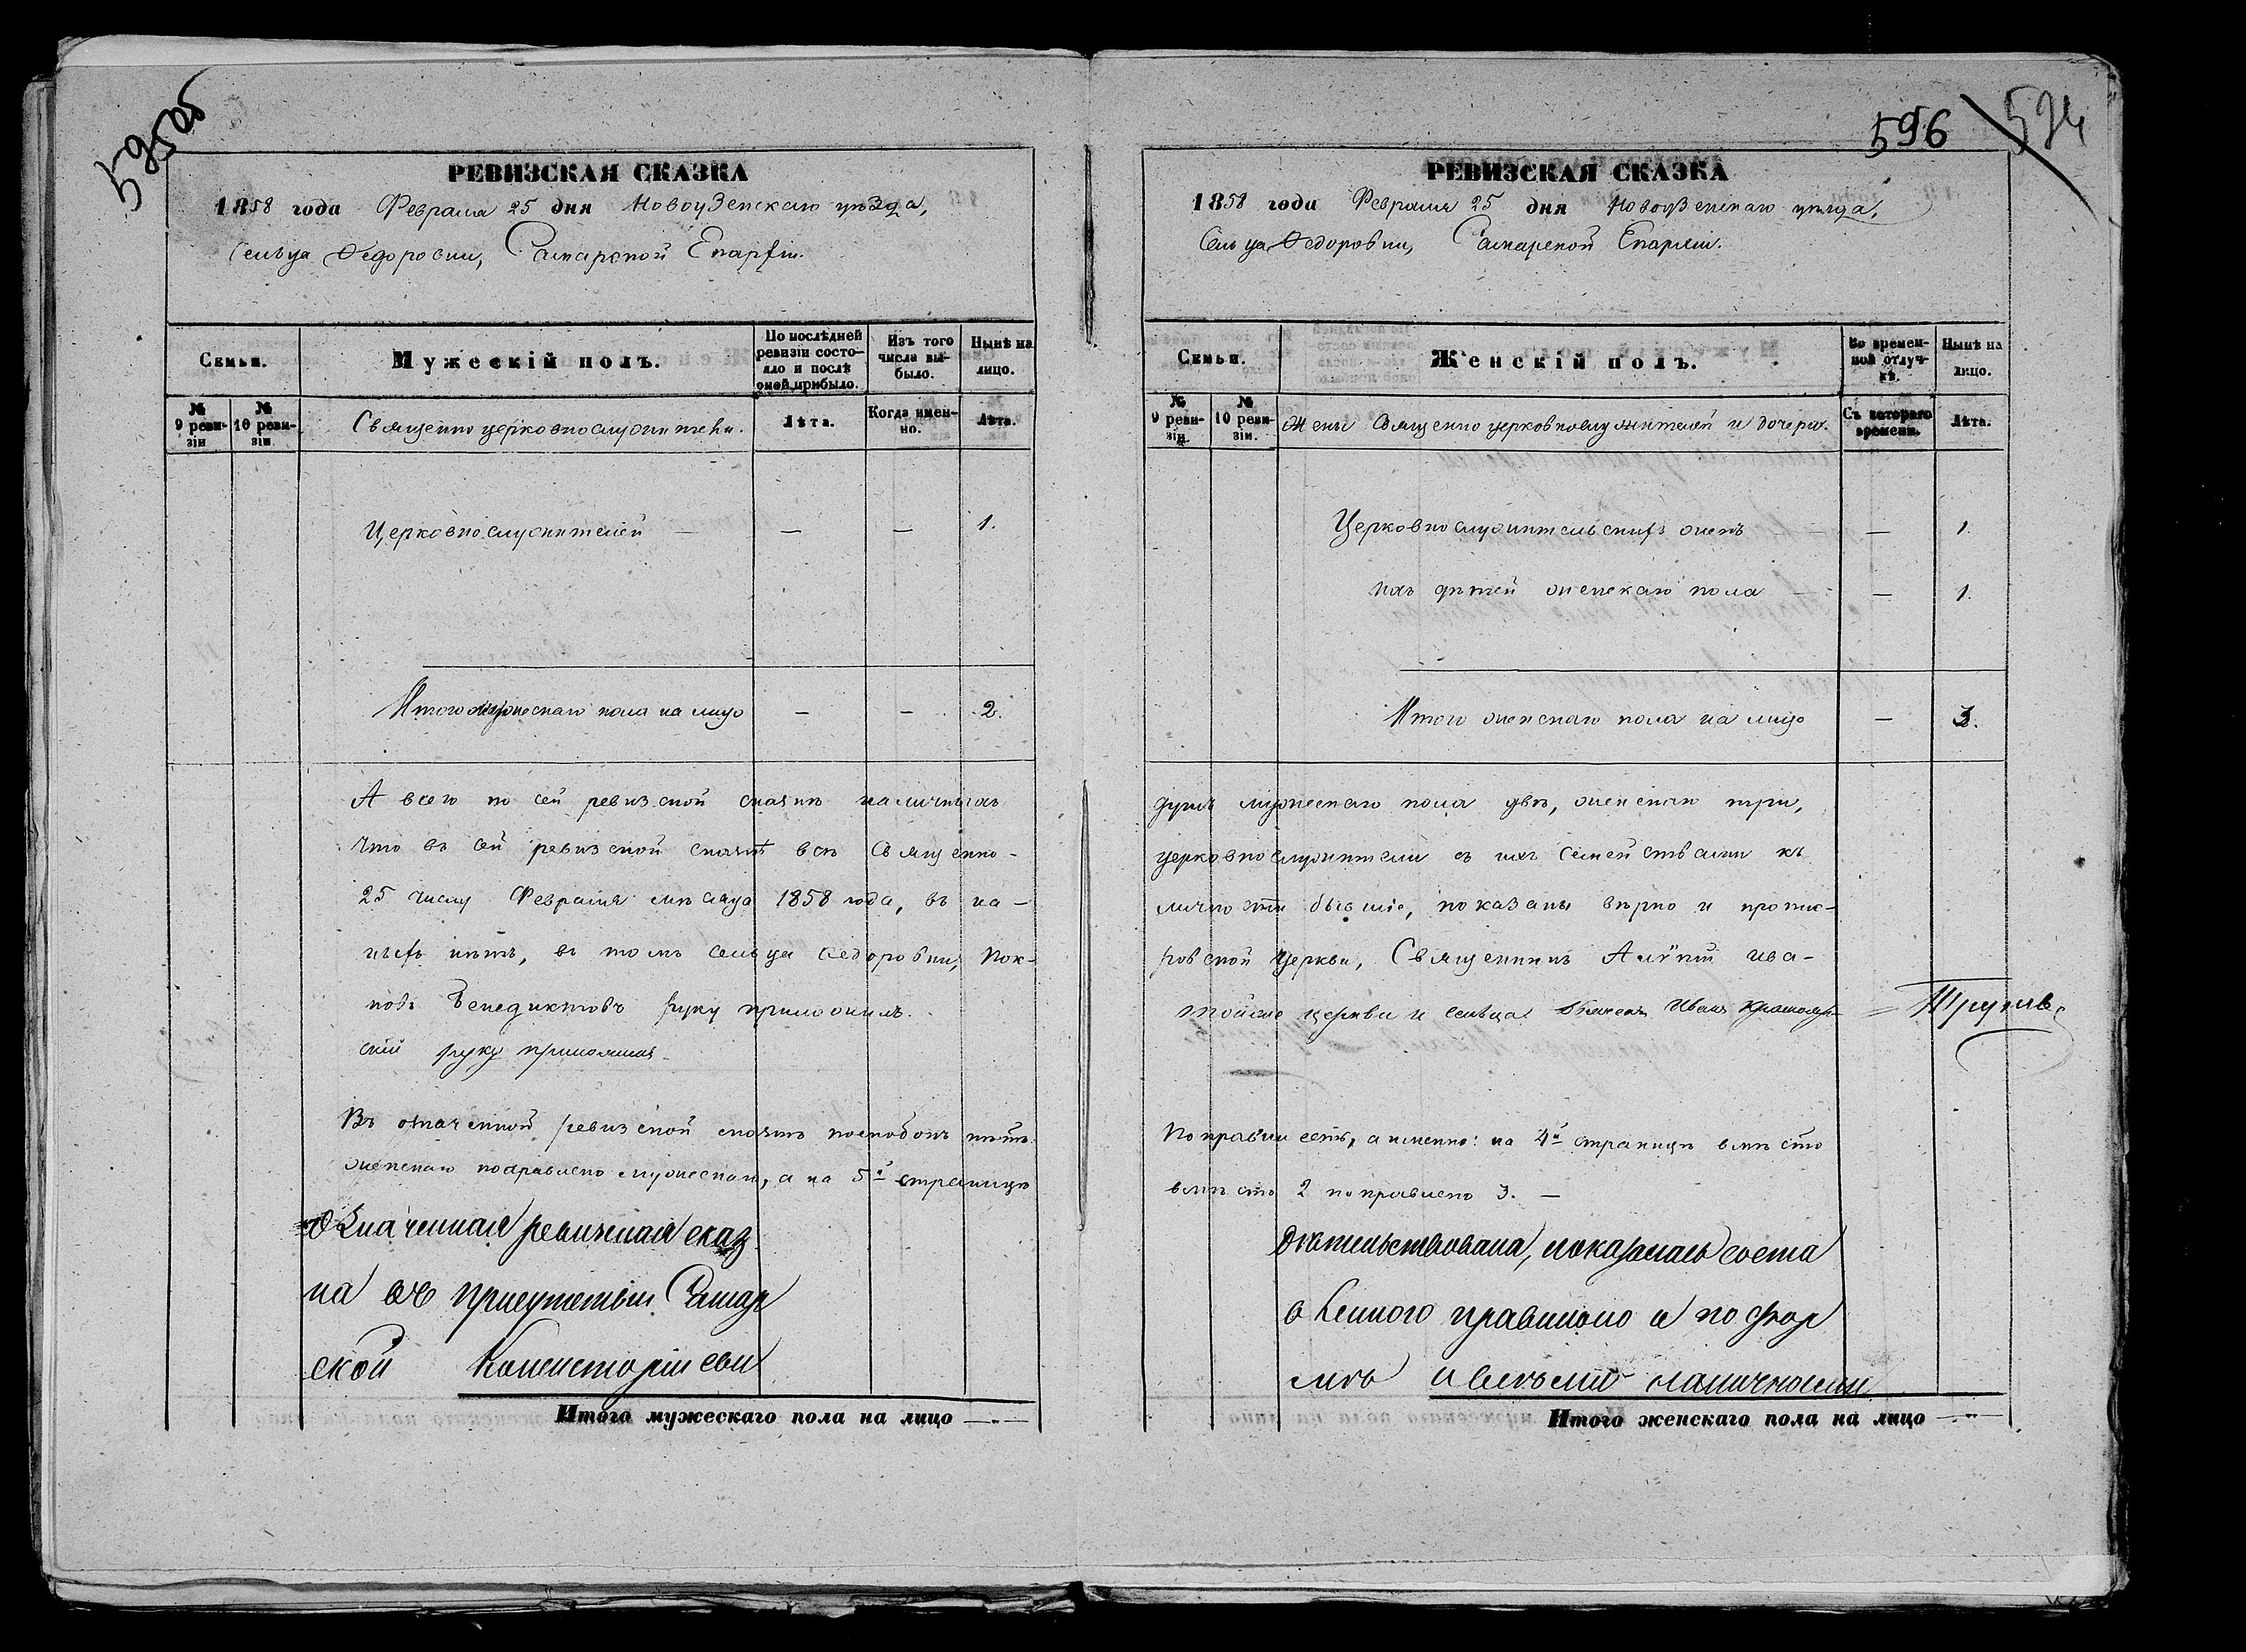 595 об
РЕВИЗСКАЯ СКАЗКА
1858 года Февраля 25 дня Новоузенскаго уѣзда,
Сельца Ѳедоровки, Самарской Епархіи.
Семьи.
Мужескій полъ.
По послѣдней ревизіи состояло и послѣ оной прибыло.
Изъ того числа выбыло.
Нынѣ на лицо.
№ 9 ревизіи
№ 10 ревизіи.
Священноцерковнослужители.
Лѣта.
Когда именно.
Лѣта.
Церковнослужителей — — — 1.
Итого мужескаго пола на лицо — — 2.
А всего по сей ревизской сказкѣ наличныхъ
что въ сей ревизской сказкѣ всѣ Священно-
25 числу Февраля мѣсяца 1858 года, въ на-
ныхъ нѣтъ, въ томъ сельца Ѳедоровки, Пок-
новъ Бенедиктовъ руку приложилъ.
скій руку приложилъ.
Въ означенной ревизской сказкѣ поскобокъ нѣтъ
женскаго поправлено мужескаго, а на 5й страницѣ
Означенная ревизская сказ
ка въ присутствіи Самар
ской Консисторіи сви
Итого мужескаго пола на лицо —„—
596 594
РЕВИЗСКАЯ СКАЗКА
1858 года Февраля 25 дня Новоузенскаго уѣзда,
Сельца Ѳедоровки, Самарской Епархіи.
Семьи.
Женскій полъ.
Во временной отлучкѣ.
Нынѣ на лицо.
№ 9 ревизіи.
№ 10 ревизіи.
Жены Священноцерковнослужителей и дочери.
Съ котораго времени.
Лѣта.
Церковнослужительскихъ женъ — — 1.
ихъ дѣтей женскаго пола — — 1.
Итого женскаго пола на лицо — 3.
душъ мужескаго пола двѣ, женскаго три,
церковнослужители съ ихъ семействами къ
личности бывшіе, показаны вѣрно и пропис-
ровской церкви, Священникъ Алѵпій Ива-
тойже церкви и сельца Иванъ
Поправки есть, а именно: на 4й страницѣ вмѣсто
вмѣсто 2 поправлено 3. —
дѣтельствована, показалась соста
вленного правильно и по фор
мѣ и всѣхъ наличными
Итого женскаго пола на лицо —„—